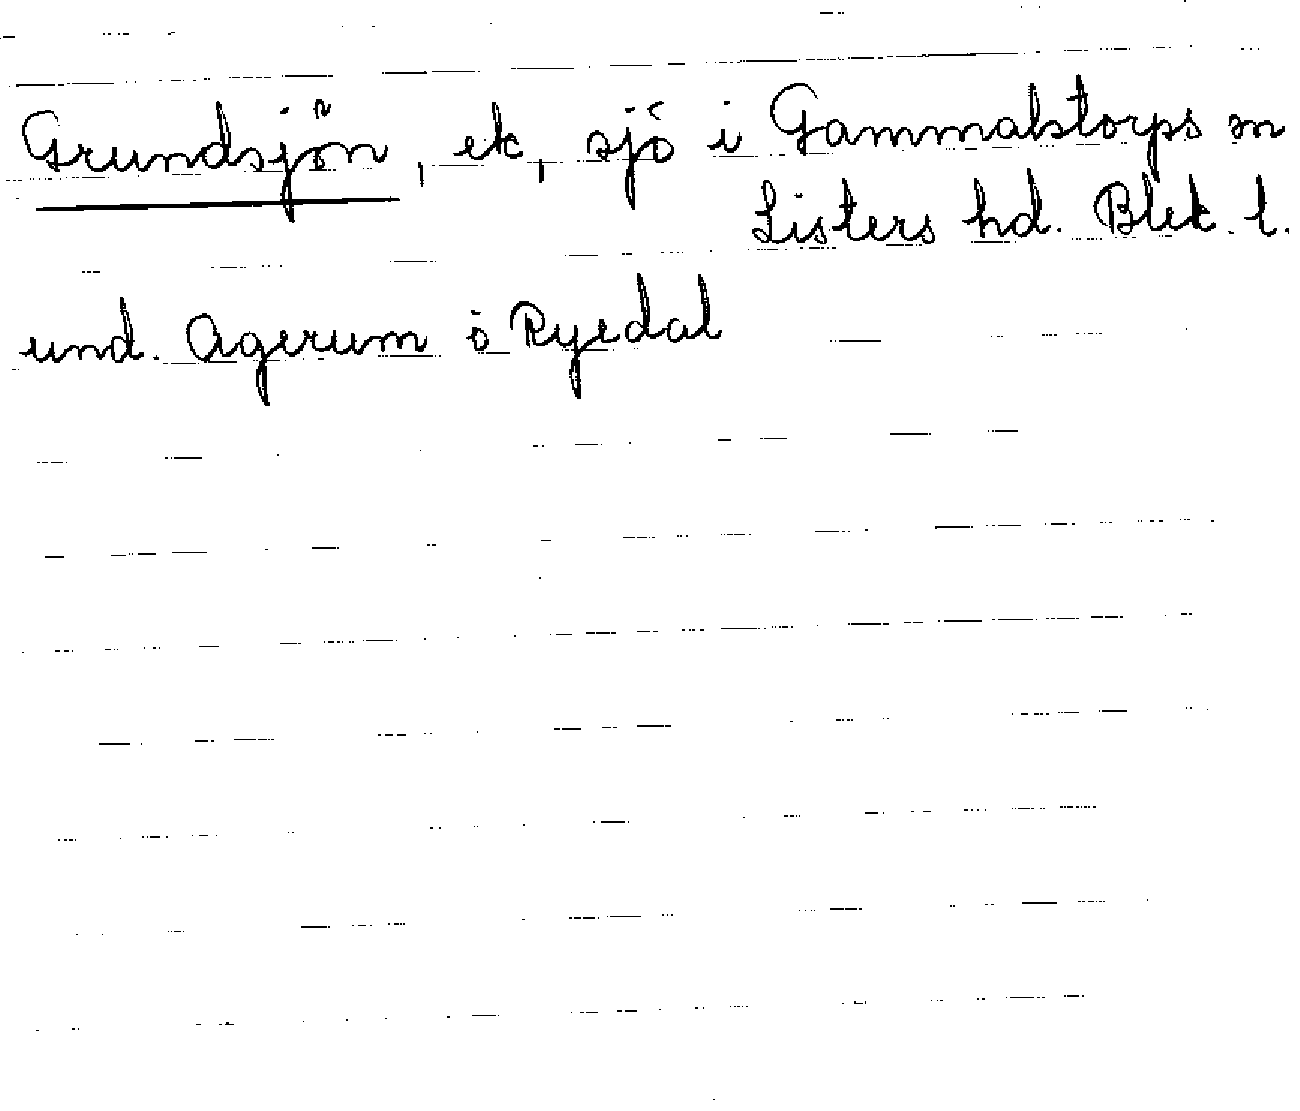 Grundsjön, ek, sjö i Gammalstorps sn
Listers hd. Blek. l.
und. Agerum o Ryedal